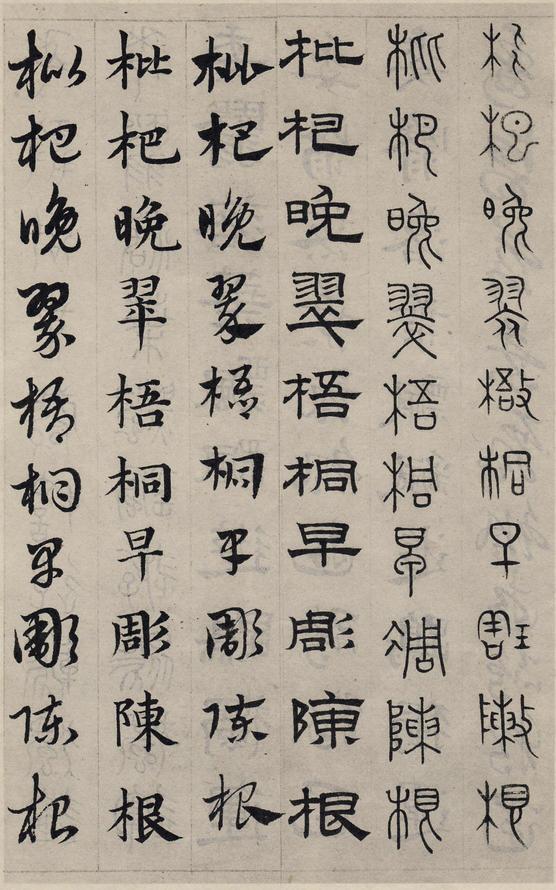 枇杷晚翠梧桐早彫陳根
枇杷晚翠梧桐早彫陳根
枇杷晚翠梧桐早彫陳根
枇杷晚翠梧桐早彫陳根
枇杷晚翠梧桐早彫陳根
枇杷晚翠梧桐早彫陳根